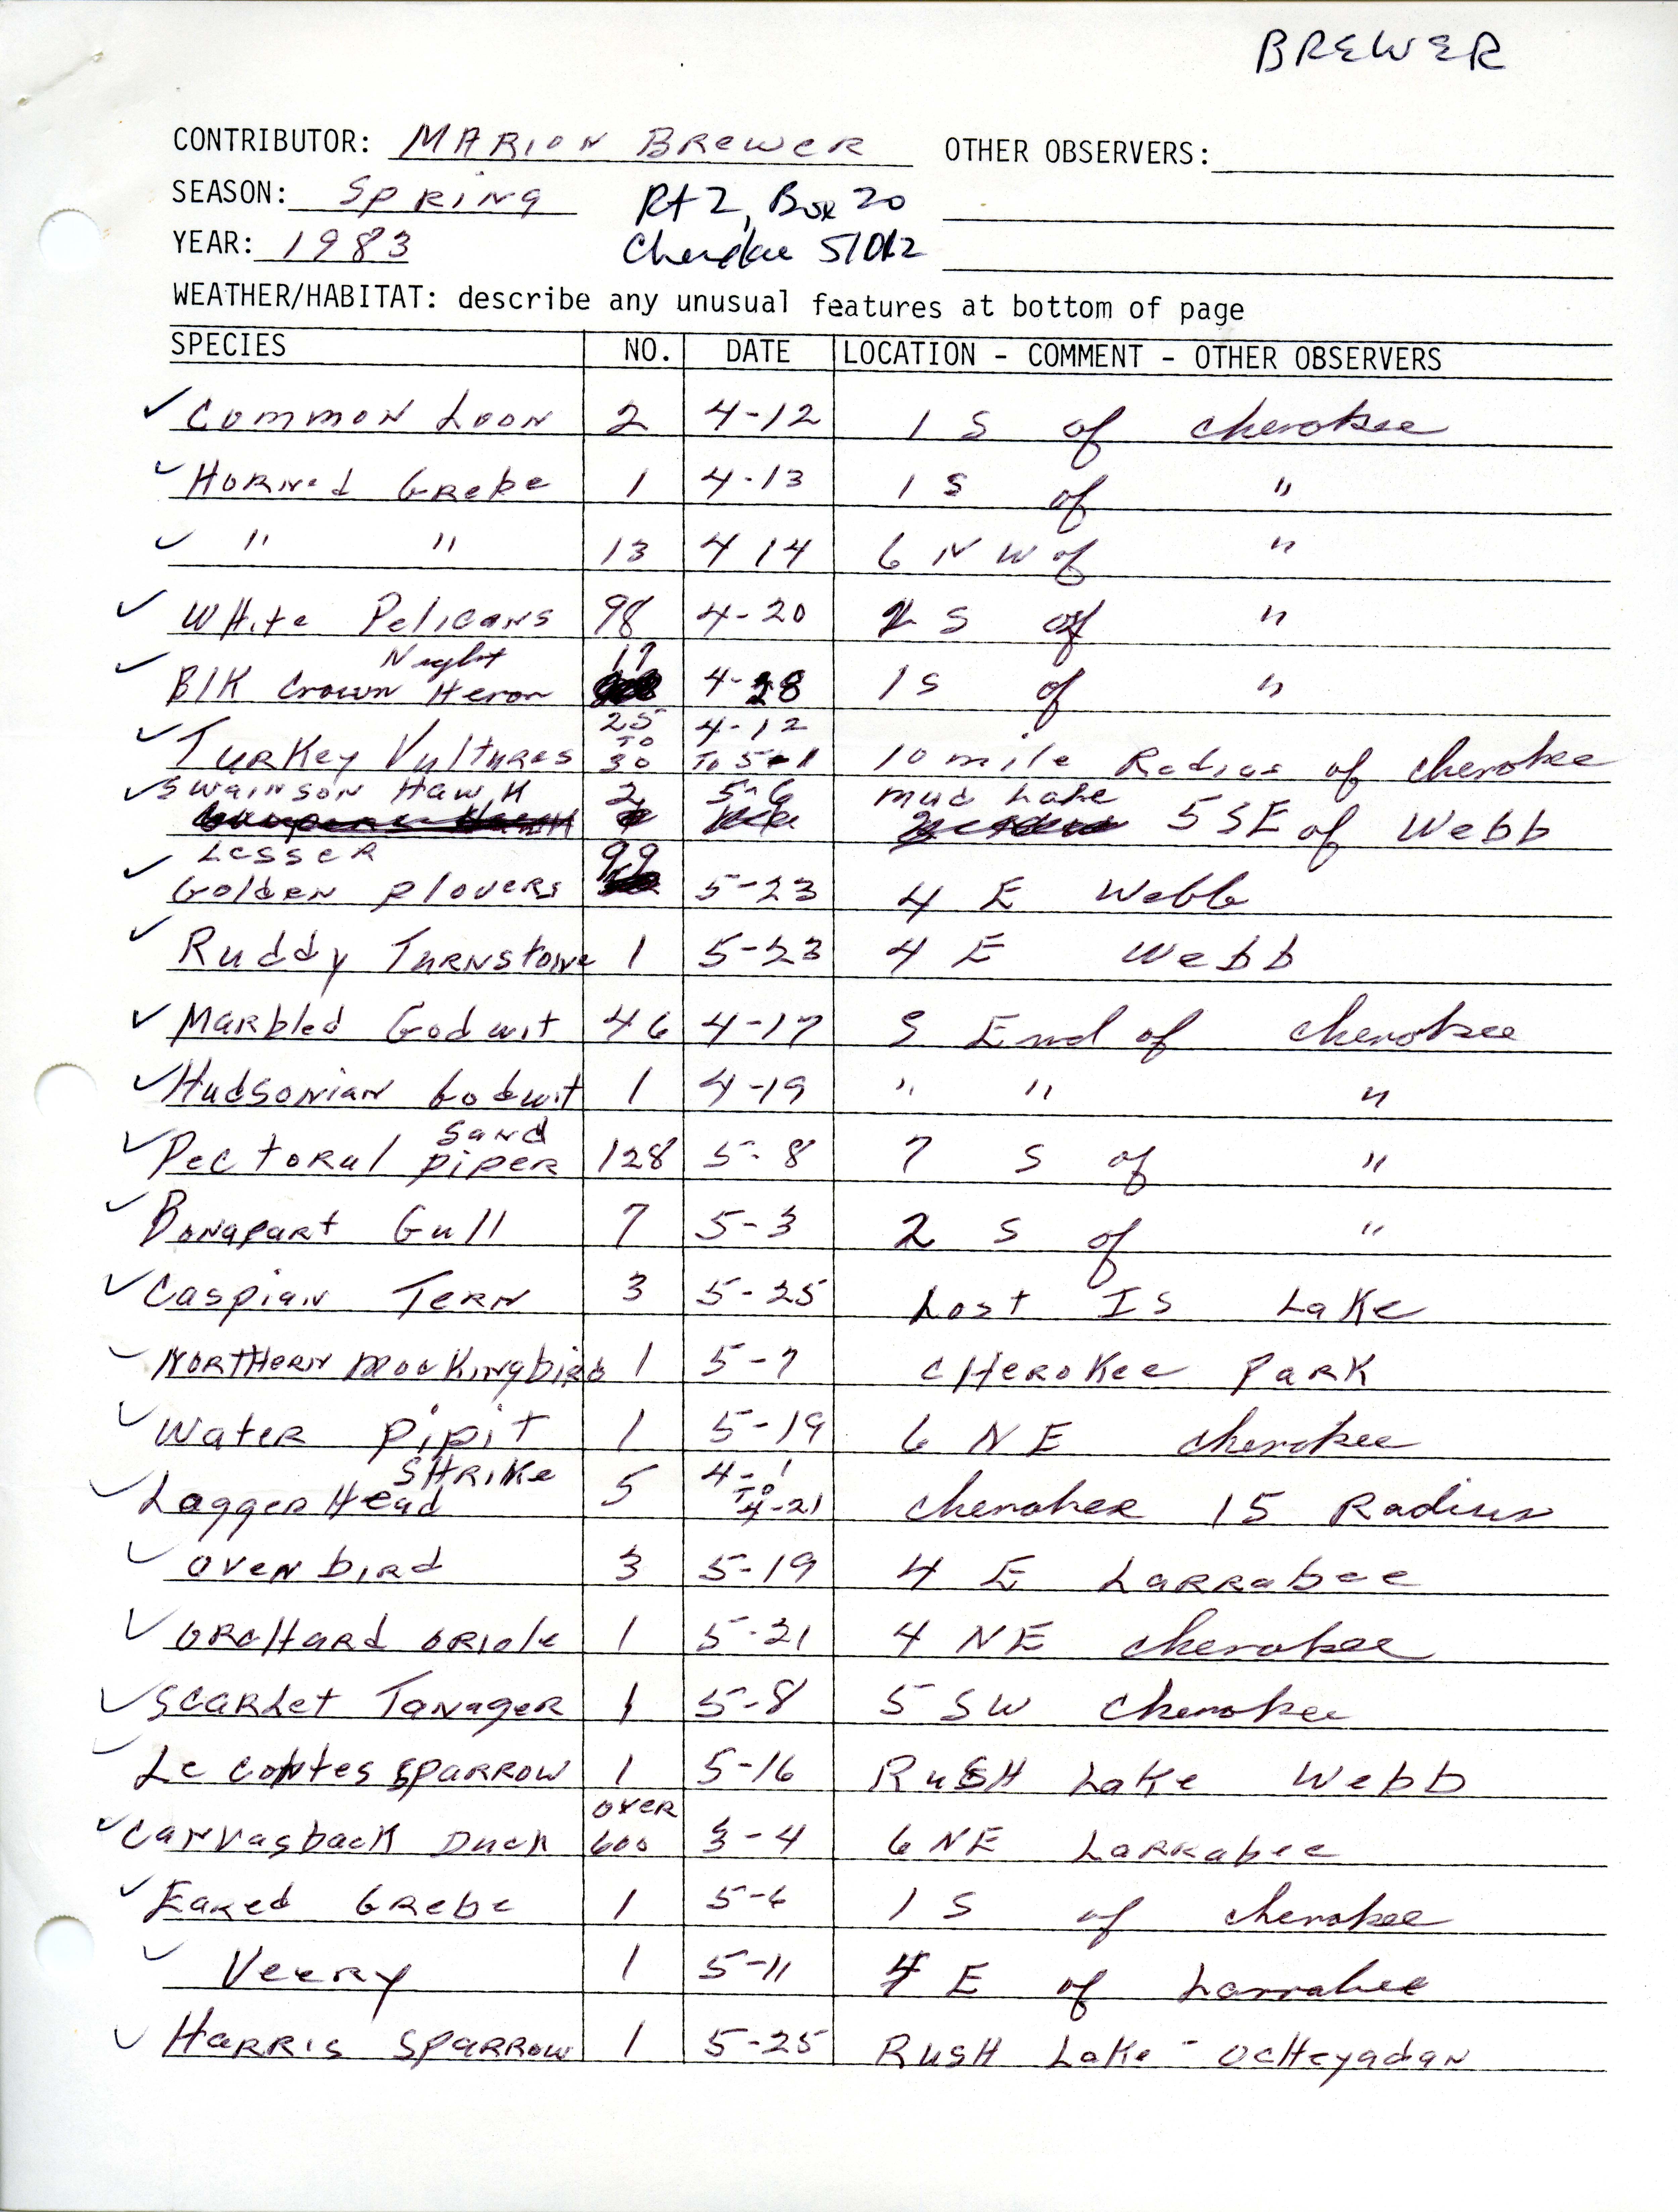 BREWER
CONTRIBUTOR: MARION BREWER OTHER OBSERVERS:
SEASON: SPRING Rt 2, Box 20
YEAR: 1983 Cherokee 51012
WEATHER/HABITAT: describe any unusual features at bottom of page
SPECIES NO. DATE LOCATION - COMMENT - OTHER OBSERVERS
✓ Common Loon 2 4-12 1 S of Cherokee
✓ Horned Grebe 1 4-13 1 S of "
✓ " " 13 4 14 6 N W of "
✓ White Pelicans 98 4-20 2 S of "
Night 17
✓ Blk Crown Heron 4-28 1 S of "
25 4-12
✓ Turkey Vultures to 30 to 5-1 10 mile Radius of Cherokee
✓ Swainson Hawk 2 5-6 Mud Lake
5 SE of Webb
Lesser 99
✓ Golden Plovers 5-23 4 E Webb
✓ Ruddy Turnstone 1 5-23 4 E Webb
✓ Marbled Godwit 46 4-17 S End of Cherokee
✓ Hudsonian Godwit 1 4-19 " " "
Sand
✓ Pectoral piper 128 5-8 7 S of "
✓ Bonapart Gull 7 5-3 2 S of "
✓ Caspian Tern 3 5-25 Lost Is Lake
✓ Northern Mockingbird 1 5-7 Cherokee Park
✓ Water Pipit 1 5-19 6 NE Cherokee
Shrike 4-1
✓ Logger Head 5 to 4-21 Cherokee 15 Radius
✓ Oven bird 3 5-19 4 E Larrabee
✓ Orchard Oriole 1 5-21 4 NE Cherokee
✓ Scarlet Tanager 1 5-8 5 SW Cherokee
✓ Le Contes Sparrow 1 5-16 Rush Lake Webb
over
✓ Canvasback Duck 600 3-4 6 NE Larrabee
✓ Eared Grebe 1 5-6 1 S of Cherokee
✓ Veery 1 5-11 4 E of Larrabee
✓ Harris Sparrow 1 5-25 Rush Lake - Ocheyadan